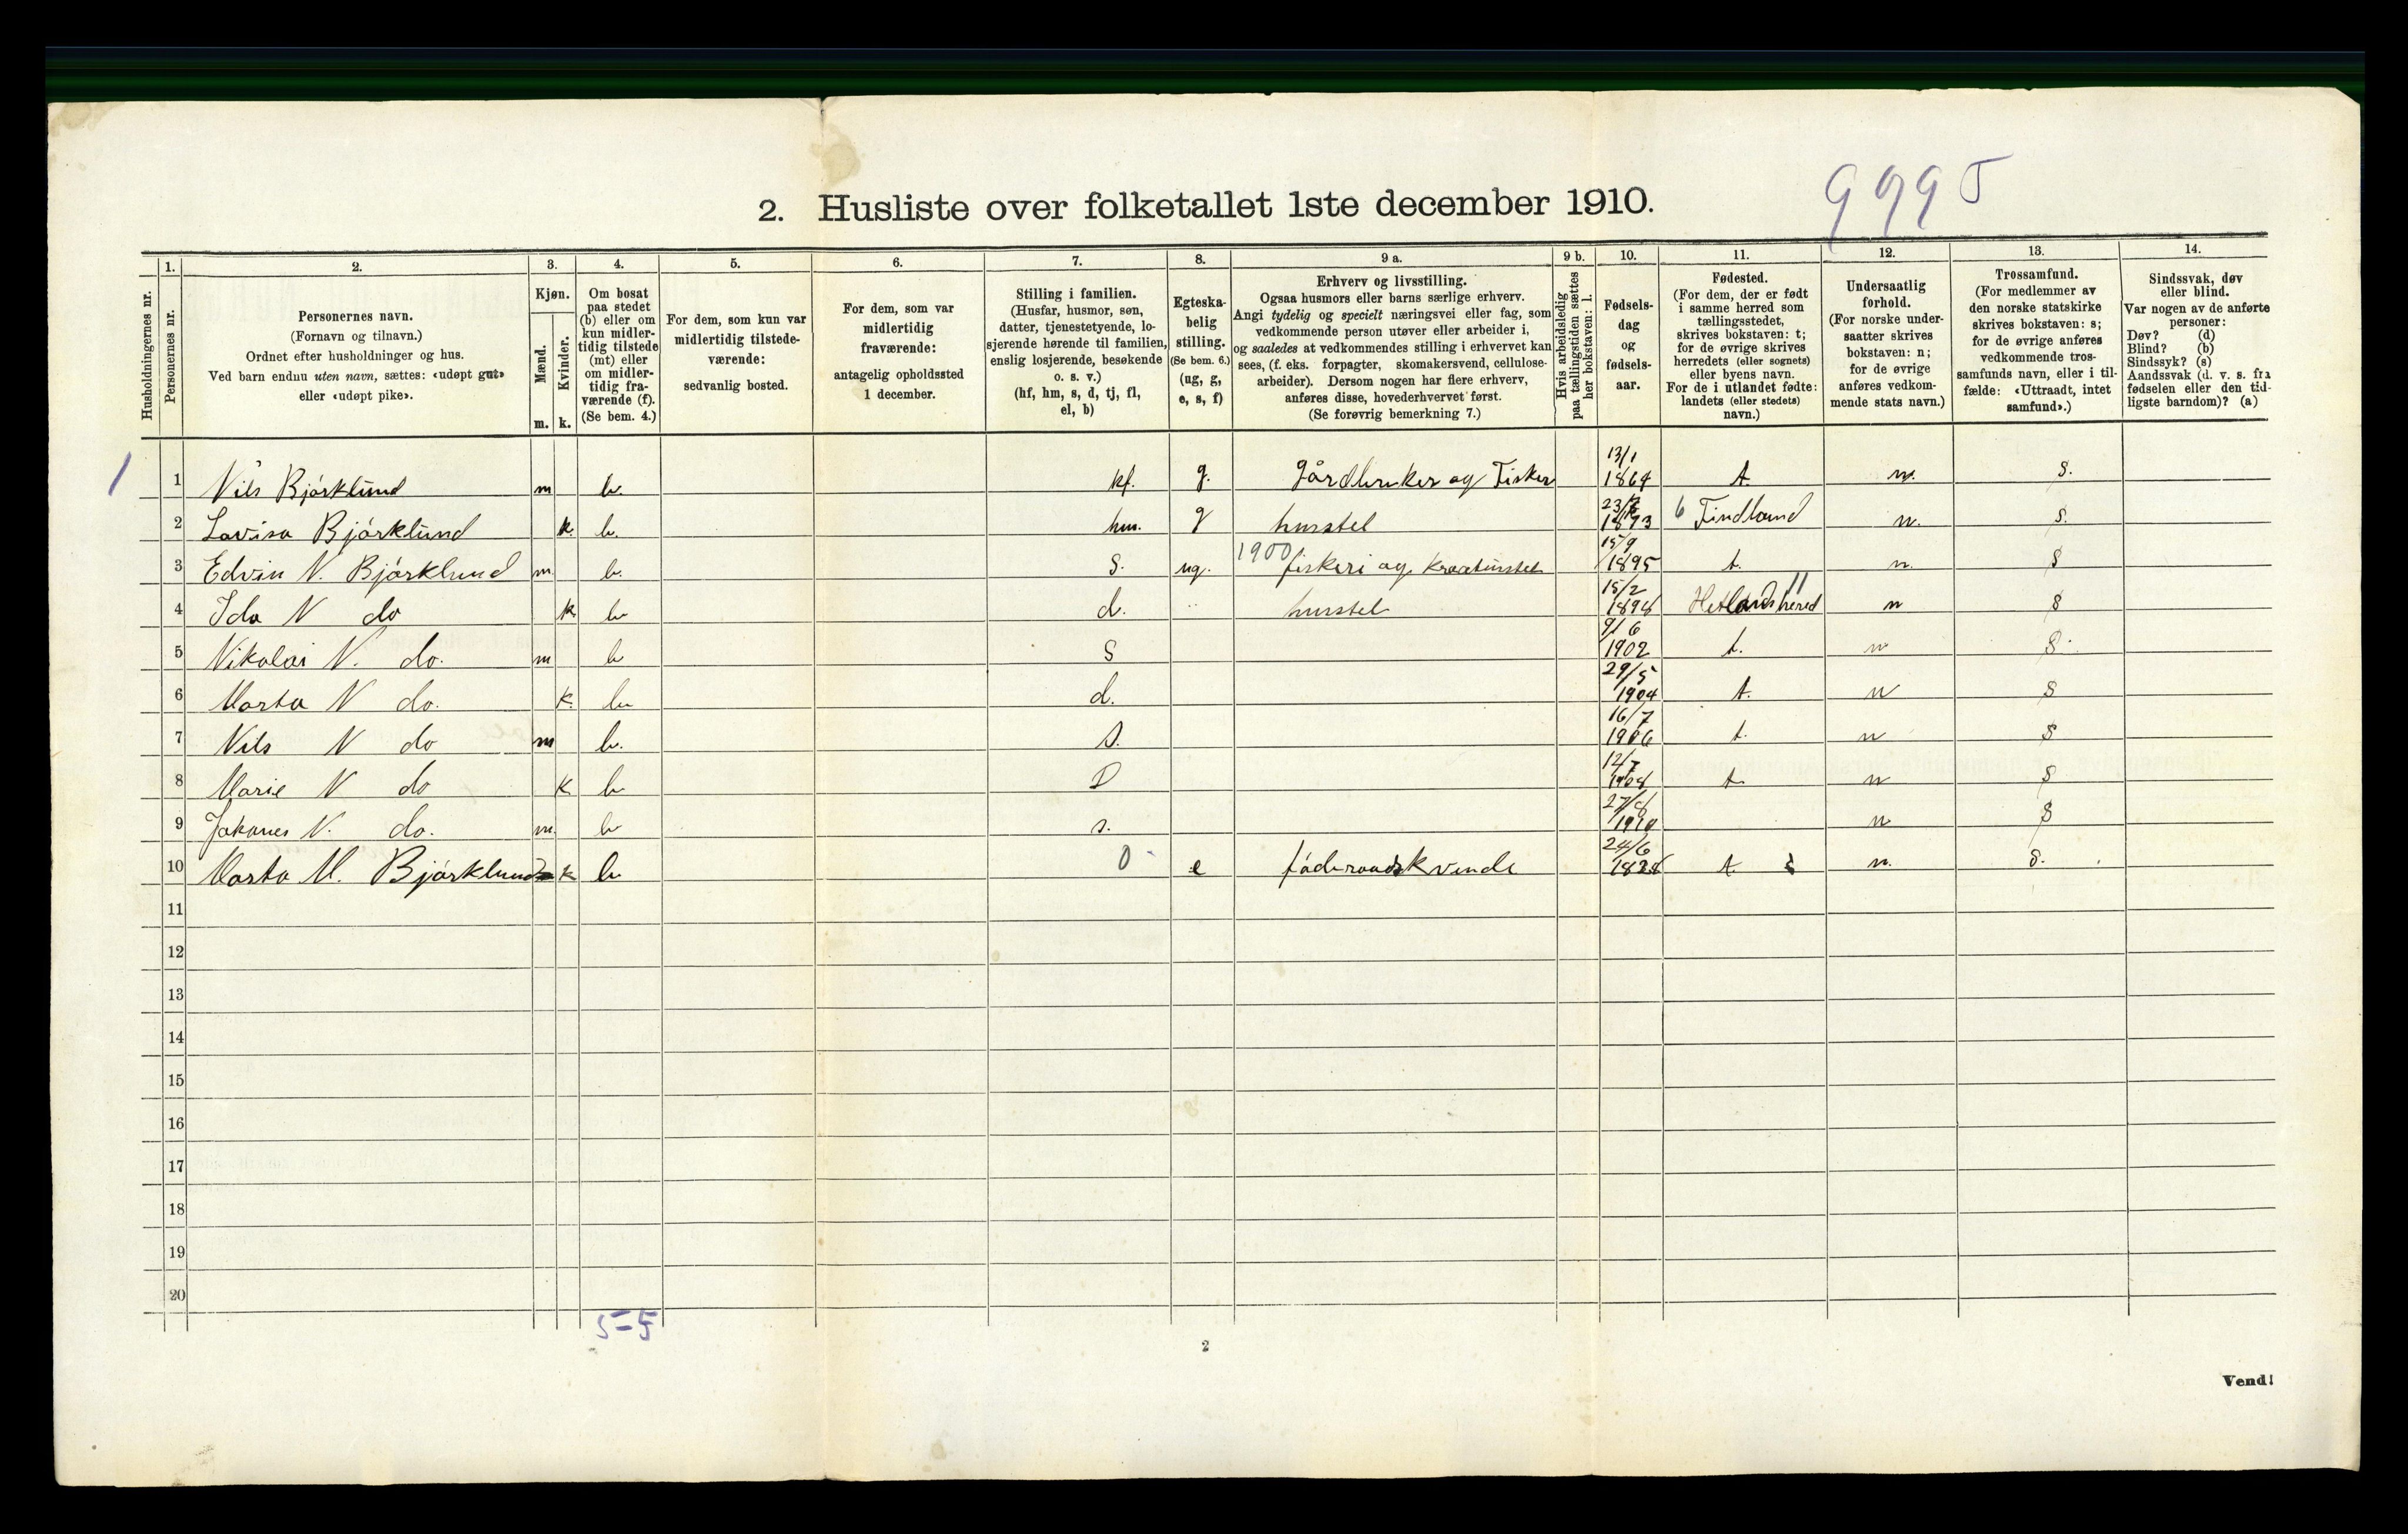 9995
2. Husliste over folketallet 1ste december 1910.
Husholdningernes nr.
1.
Personernes nr.
2.
Personernes navn.
(Fornavn og tilnavn.)
Ordnet efter husholdninger og hus.
Ved barn endnu uten navn, sættes: «udøpt gut»
eller «udøpt pike».
3.
Kjøn.
Mænd.
Kvinder.
m. k.
4.
Om bosat
paa stedet
(b) eller om
kun midler-
tidig tilstede
(mt) eller
om midler-
tidig fra-
værende (f).
(Se bem. 4.)
5.
For dem, som kun var
midlertidig tilstede-
værende:
sedvanlig bosted.
6.
For dem, som var
midlertidig
fraværende:
antagelig opholdssted
1 december.
7.
Stilling i familien.
(Husfar, husmor, søn,
datter, tjenestetyende, lo-
sjerende hørende til familien,
enslig losjerende, besøkende
o. s. v.)
(hf, hm, s, d, tj, fl,
el, b)
8.
Egteska-
belig
stilling.
(Se bem. 6.)
(ug, g,
e, s, f)
9 a.
Erhverv og livsstilling.
Ogsaa husmors eller barns særlige erhverv.
Angi tydelig og specielt næringsvei eller fag, som
vedkommende person utøver eller arbeider i,
og saaledes at vedkommendes stilling i erhvervet kan
sees, (f. eks. forpagter, skomakersvend, cellulose-
arbeider). Dersom nogen har flere erhverv,
anføres disse, hovederhvervet først.
(Se forøvrig bemerkning 7.)
9 b.
Hvis arbeidsledig
paa tællingstiden sættes
her bokstaven: l.
10.
Fødsels-
dag
og
fødsels-
aar.
11.
Fødested.
(For dem, der er født
i samme herred som
tællingsstedet,
skrives bokstaven: t;
for de øvrige skrives
herredets (eller sognets)
eller byens navn.
For de i utlandet fødte:
landets (eller stedets)
navn.)
12.
Undersaatlig
forhold.
(For norske under-
saatter skrives
bokstaven: n;
for de øvrige
anføres vedkom-
mende stats navn.)
13.
Trossamfund.
(For medlemmer av
den norske statskirke
skrives bokstaven: s;
for de øvrige anføres
vedkommende tros-
samfunds navn, eller i til-
fælde: «Uttraadt, intet
samfund».)
14.
Sindssvak, døv
eller blind.
Var nogen av de anførte
personer:
Døv? (d)
Blind? (b)
Sindssyk? (s)
Aandssvak (d. v. s. fra
fødselen eller den tid-
ligste barndom)? (a)
1 1 Nils Bjórklund m b. hf. g. gårdbruker og Fisker 13/1 1864 t n. s.
2 Lovisa Bjórklund k. b. hm. g husstel 1873 6 Findland n. s.
3 Edvin N. Bjórklund m. b. S. ug. 1900 fiskeri og kreaturstel 15/9 1895 t. n. s
4 Ida N do k. b d. husstel 15/2 1898 Hetlands herred 11 n s
5 Nikolai N. do. m b S 9/6 1902 t. n s
6 Marta N do. k. b d. 29/5 1904 t. n s
7 Nils N do m b. s. 16/7 1906 t. n s
8 Marie N do k b D 12/7 1908 t n s
9 Johanes N. do. m. b s. 27/8 1910 n s
10 Marta M. Bjórklund k b 0 e fóderaadskvinde 24/6 t. n. s.
11
12
13
14
15
16
17
18
19
20
5-5
2
Vend!